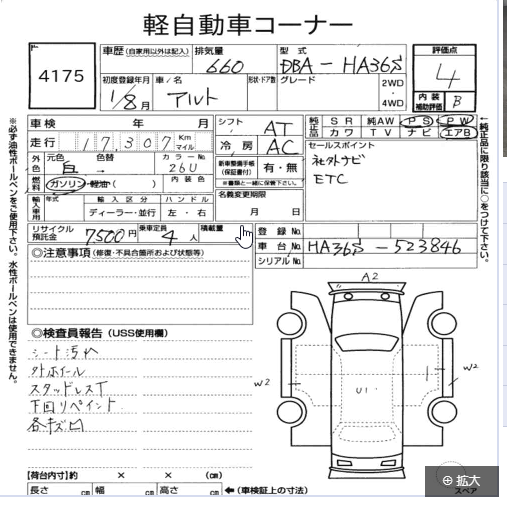 軽自動車コーナー
4175
車歴（自家用以外は記入）
排気量
660
型式
DBA-HA36S
評価点
4
初度登録年月
1/8月
車/名
アルト
形状・ドア数
グレード
2WD
・
4WD
内装
補助評価
B
車検 年 月
シフト
AT
純正品
SR 純AW PS PW
カワ TV ナビ エアB
走行 17,307 Km
マイル
冷房 AC
セールスポイント
社外ナビ
ETC
外色
元色
色替
カラーNo.
26U
新車整備手帳
（保証書付）
有・無
※書類と一緒に保管下さい。
燃料
ガソリン・軽油・( )
内装色
輸入車用
年式
輸入区分
ハンドル
ディーラー・並行
左・右
名義変更期限
月 日
リサイクル
預託金
7500円
乗車定員
4人
積載量
登録No.
車台No.
HA36S-523846
シリアルNo.
◎注意事項（修復・不具合箇所および状態等）
◎検査員報告（USS使用欄）
シート汚れ
外ホイール
スタッドレスT
下回リペイント
各キズ凹
A2
W2
W2
U1
【荷台内寸】約 × × (cm)
長さ cm 幅 cm 高さ cm ←（車検証上の寸法）
スペア
拡大
※必ず油性ボールペンをご使用下さい。水性ボールペンは使用できません。
←純正品に限り該当に○をつけて下さい。